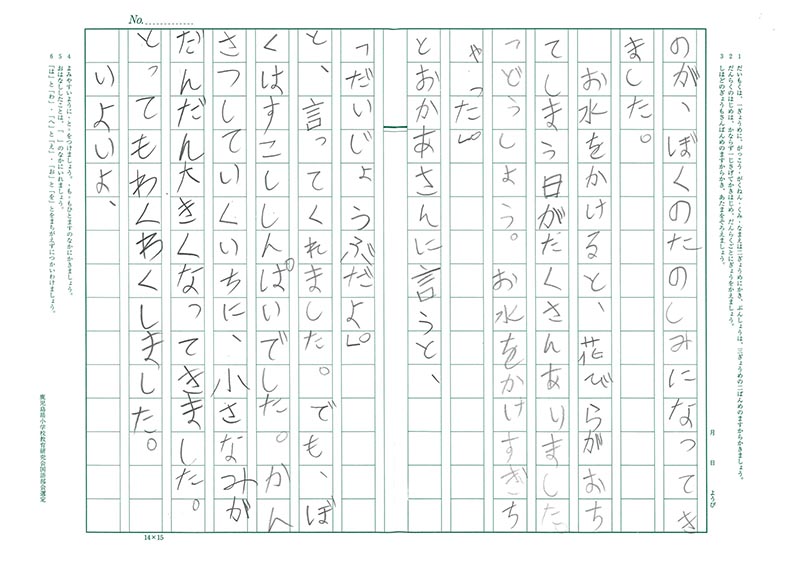 No.
1 だいもくは、一ぎょうめに、がっこう・がくねん・くみ・なまえは二ぎょうめにかき、ぶんしょうは、三ぎょうめの二ばんめのますからかきましょう。
2 だんらくのはじめは、かならず一じさげてかきはじめ、だんらくごとにぎょうをかえましょう。
3 しはどのぎょうもさんばんめのますからかき、あたまをそろえましょう。
月 日 ようび
のが、ぼくのたのしみになってき
ました。
お水をかけると、花びらがおち
てしまう日がたくさんありました
「どうしよう。お水をかけすぎち
ゃった」
とおかあさんに言うと、
「だいじょうぶだよ」。
と、言ってくれました。でも、ぼ
くはすこししんぱいでした。かん
さつしていくいちに、小さなみが
だんだん大きくなってきました。
とってもわくわくしました。
いよいよ、
4 よみやすいように、と。をつけましょう。、も。もひとますのなかにかきましょう。
5 おはなししたことは、「 」のなかにいれましょう。
6 「は」と「わ」・「へ」と「え」・「お」と「を」とをまちがえずにつかいわけましょう。
鹿児島県小学校教育研究会国語部会選定
14×15